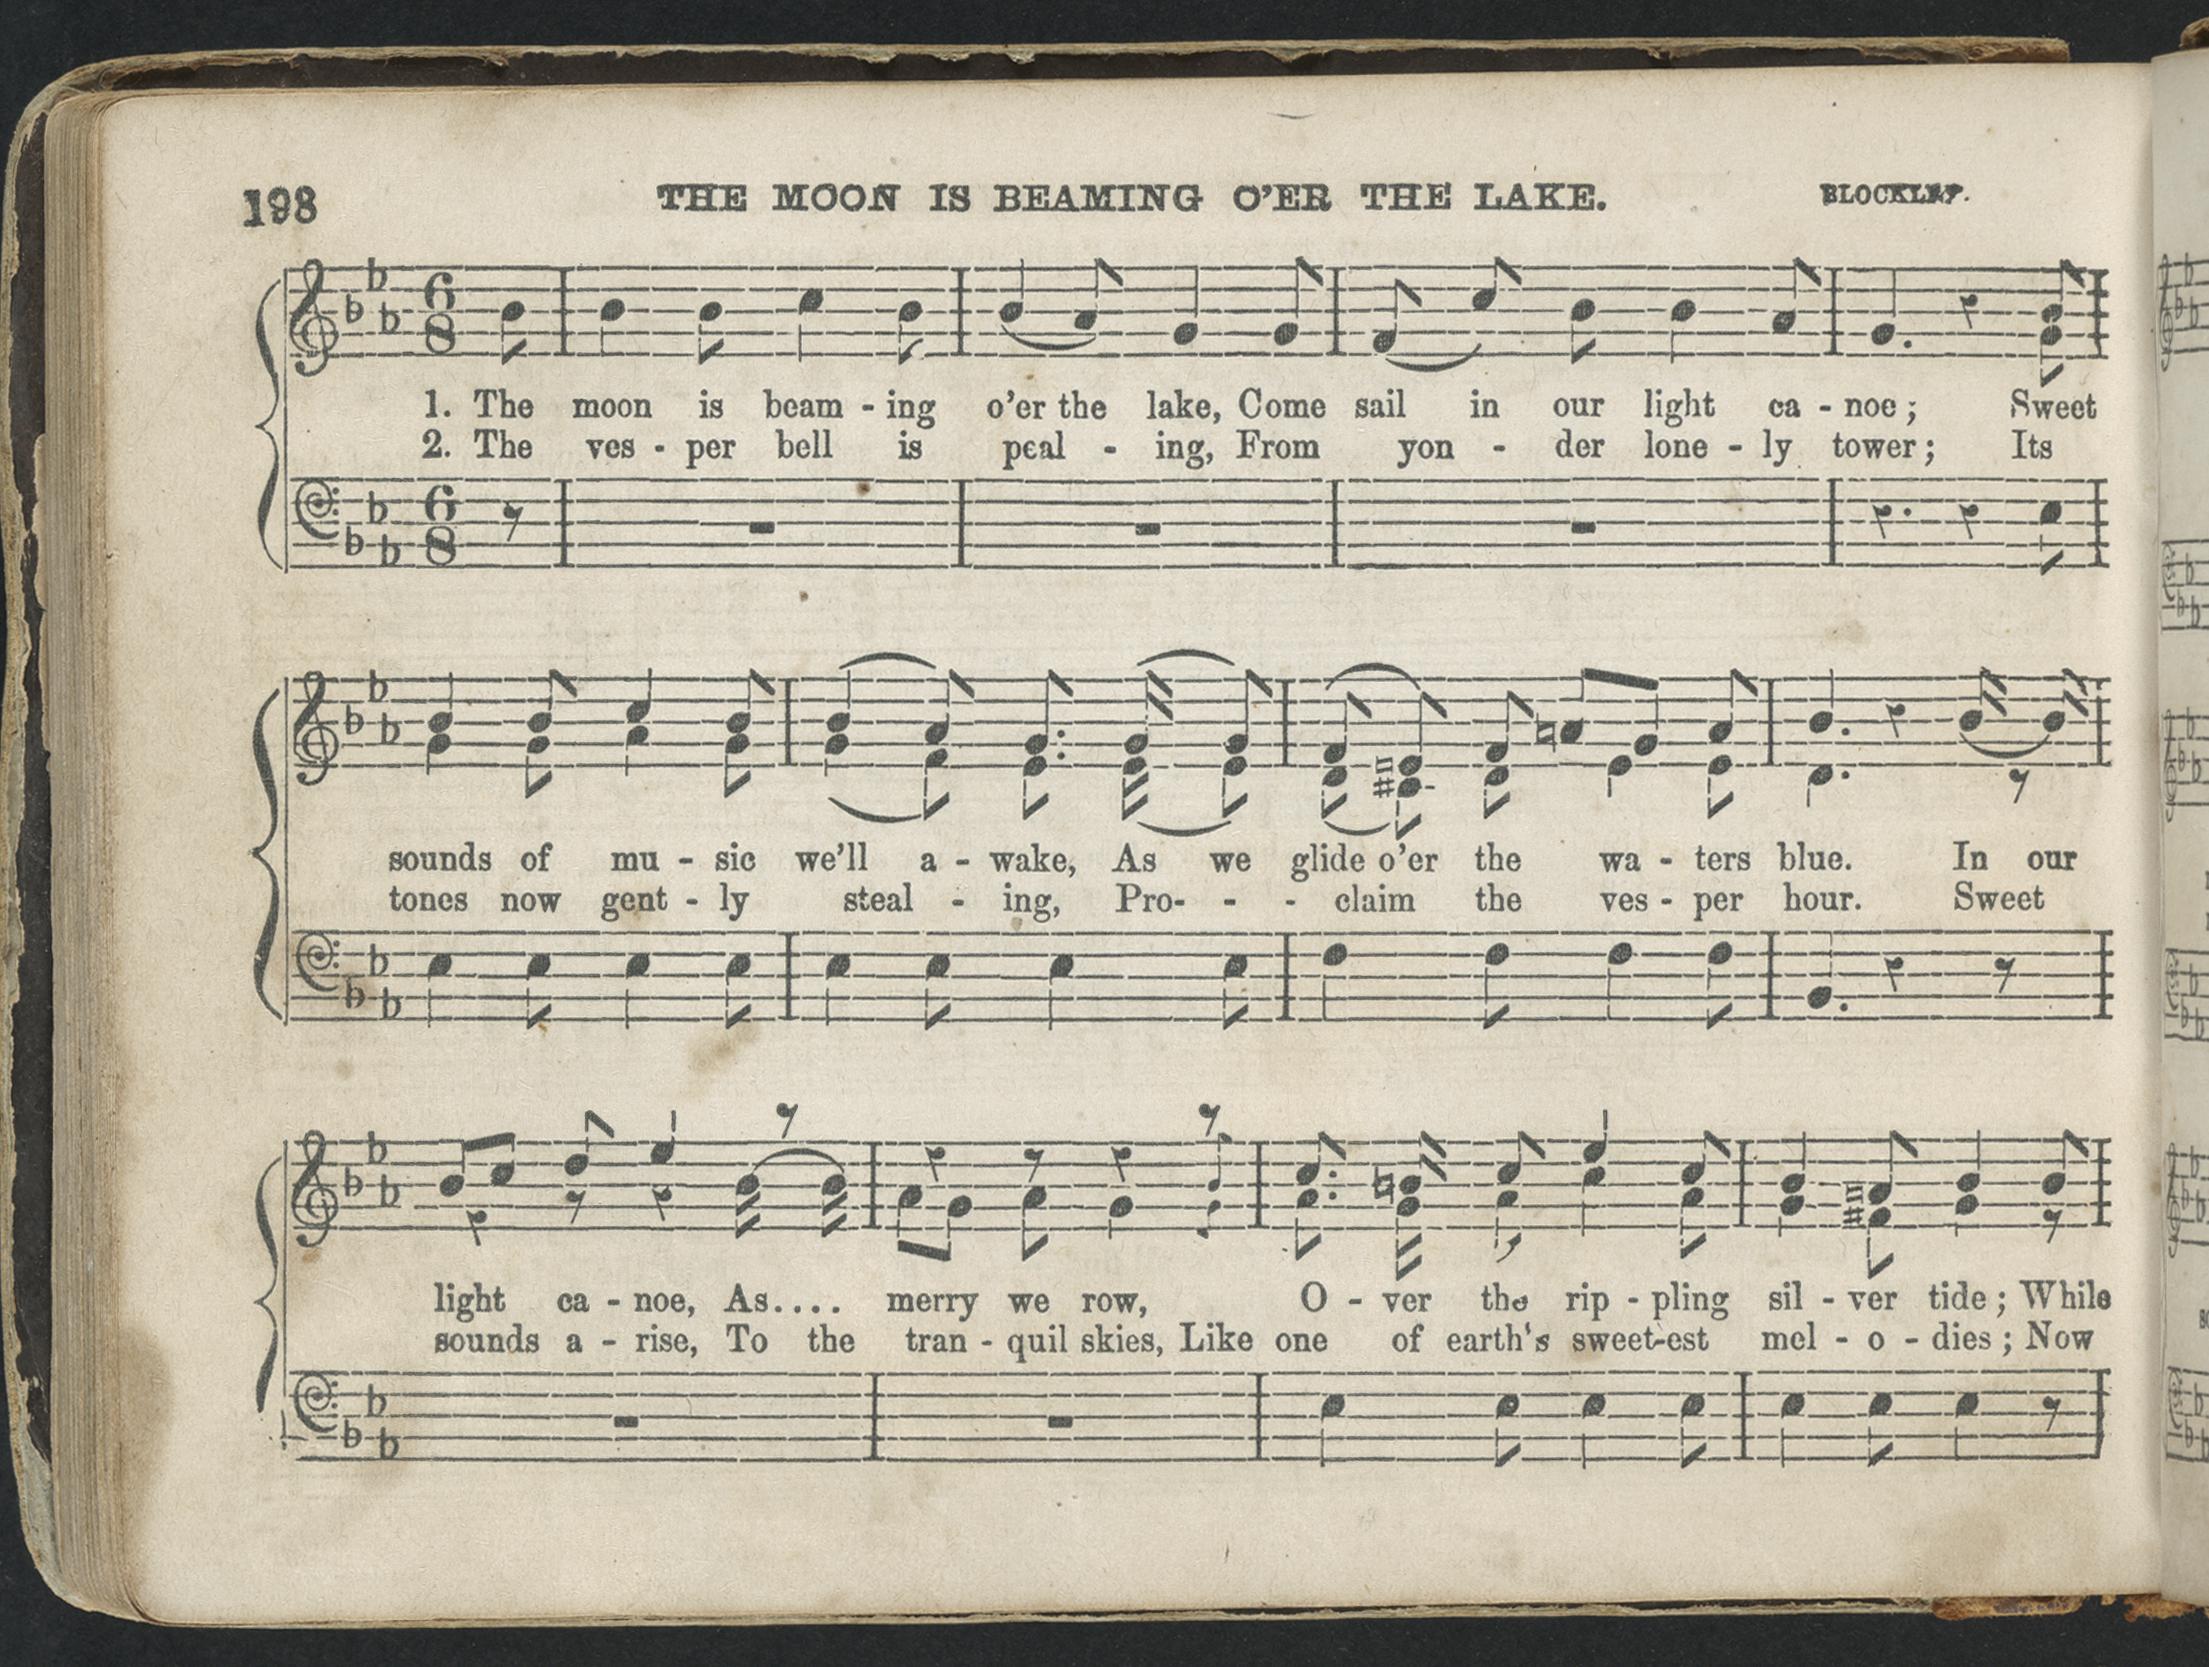 198
THE MOON IS BEAMING O'ER THE LAKE.
BLOCKLEY.
1. The moon is beam - ing o'er the lake, Come sail in our light ca - noe; Sweet
2. The ves - per bell is peal - ing, From yon - der lone - ly tower; Its
sounds of mu - sic we'll a - wake, As we glide o'er the wa - ters blue. In our
tones now gent - ly steal - ing, Pro- - - claim the ves - per hour. Sweet
light ca - noe, As.... merry we row, O - ver the rip - pling sil - ver tide; While
sounds a - rise, To the tran - quil skies, Like one of earth's sweet-est mel - o - dies; Now